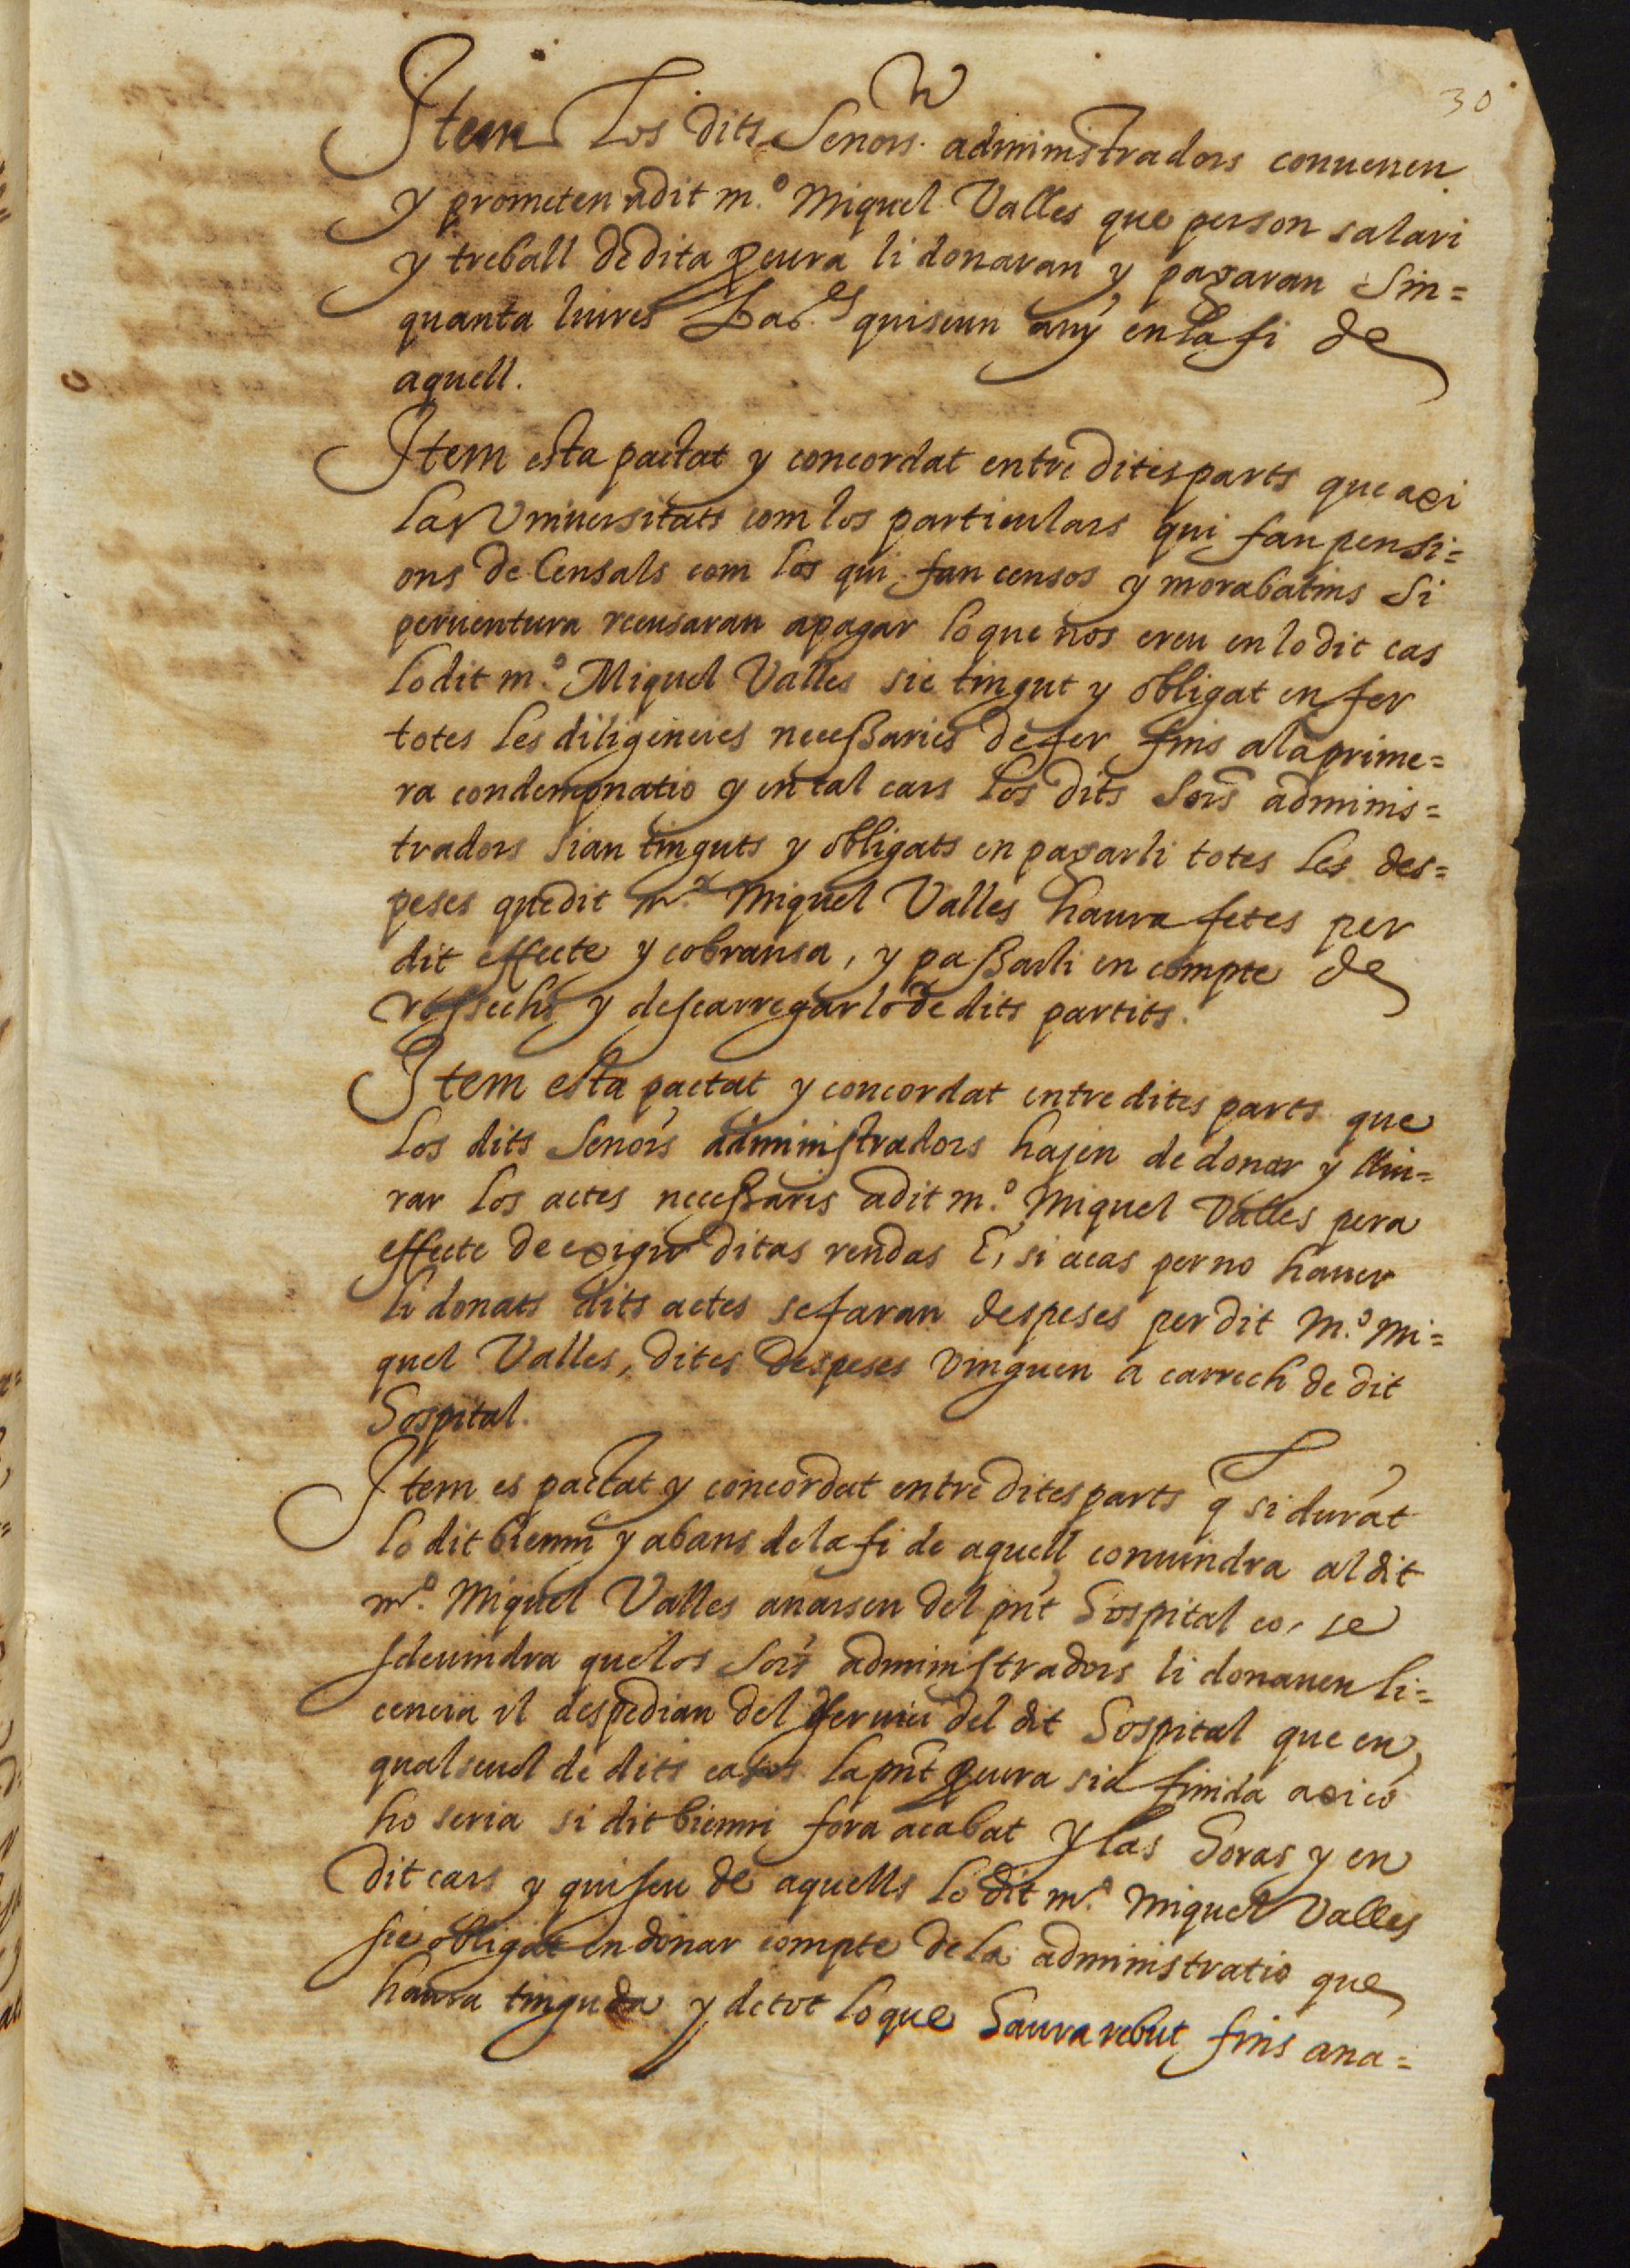 30
Item Los dits Senors administradors conuenen
y prometen a dit m.º Miquel Valles que per son salari
y treball de dita ꝓcura li donaran y pagaran Sin=
quanta liures Bar.es quiscun any en la fi de
aquell.
Item esta pactat y concordat entre dites parts que axi
las Vniuersitats com los particulars qui fan pensi=
ons de Censals com los qui fan censos y morabatins Si
peruentura recusaran a pagar lo que nos creu en lo dit cas
lo dit m.º Miquel Valles sie tingut y obligat en fer
totes les diligencies neceßaries de fer fins a la prime=
ra condempnatio y en tal cars los dits Sors adminis=
tradors sian tinguts y obligats en pagarli totes les des=
peses que dit m.º Miquel Valles haura fetes per
dit effecte y cobransa, y paßarli en compte de
rossechs y descarregarlo de dits partits.
Item esta pactat y concordat entre dites parts que
los dits Senors administradors hajen de donar y lliu=
rar los actes neceßaris a dit m.º Miquel Valles pera
effecte de exigir ditas rendas E, si acas per no hauer
li donats dits actes se faran despeses per dit M.º Mi=
quel Valles, dites despeses vinguen a carrech de dit
Hospital.
Item es pactat y concordat entre dites parts q̃ si durãt
lo dit bienni y abans de la fi de aquell conuindra al dit
m.º Miquel Valles anarsen del pñt Hospital o, se
sdeuindra que los Sors administradors li donauen li=
cencia il despedian del seruici del dit Hospital que en
qualseuol de dits casos la pñt ꝓcura sie finida axi cõ
ho seria si dit bienni fora acabat y las horas y en
dit cars y quiscu de aquells lo dit m.º Miquel Valles
sie obligat en donar compte de la administratio que
haura tinguda y de tot lo que haura rebut fins ana=